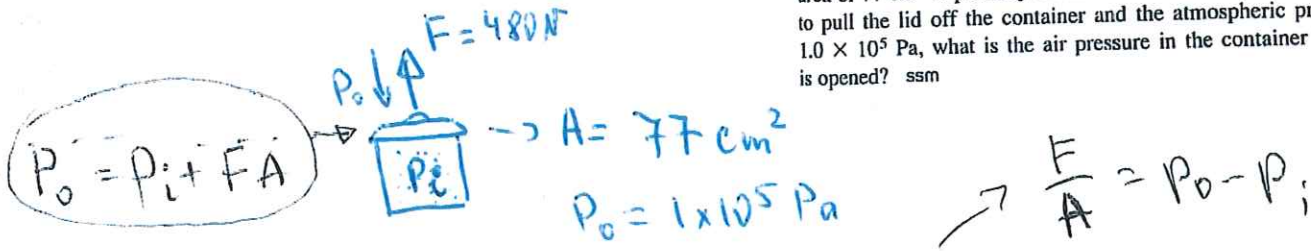 to pull the lid off the container and the atmospheric
1.0 × 10⁵ Pa, what is the air pressure in the container
is opened? ssm
F = 480 N
P₀
P₀ = Pᵢ + FA
Pᵢ
A = 77 cm²
P₀ = 1×10⁵ Pa
F/A = P₀ - Pᵢ